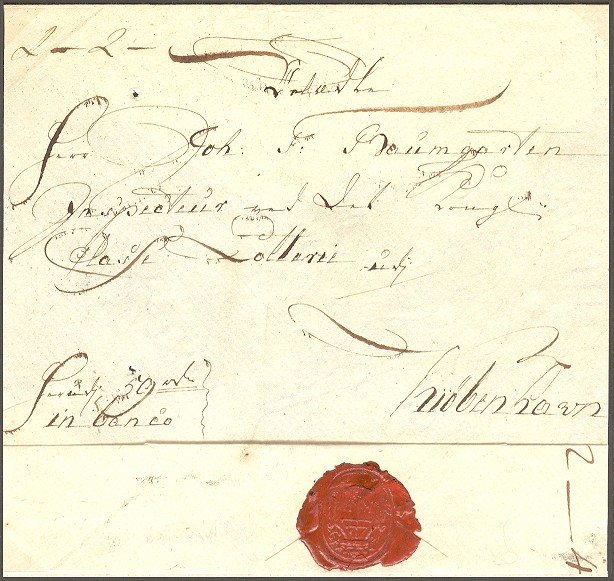 2 - 2 -
Herr Joh: F: Baumgarten
Inspecteur ved Det Kongl:
Classe Lotterie udj
Kiøbenhavn
20
in banco
2 -